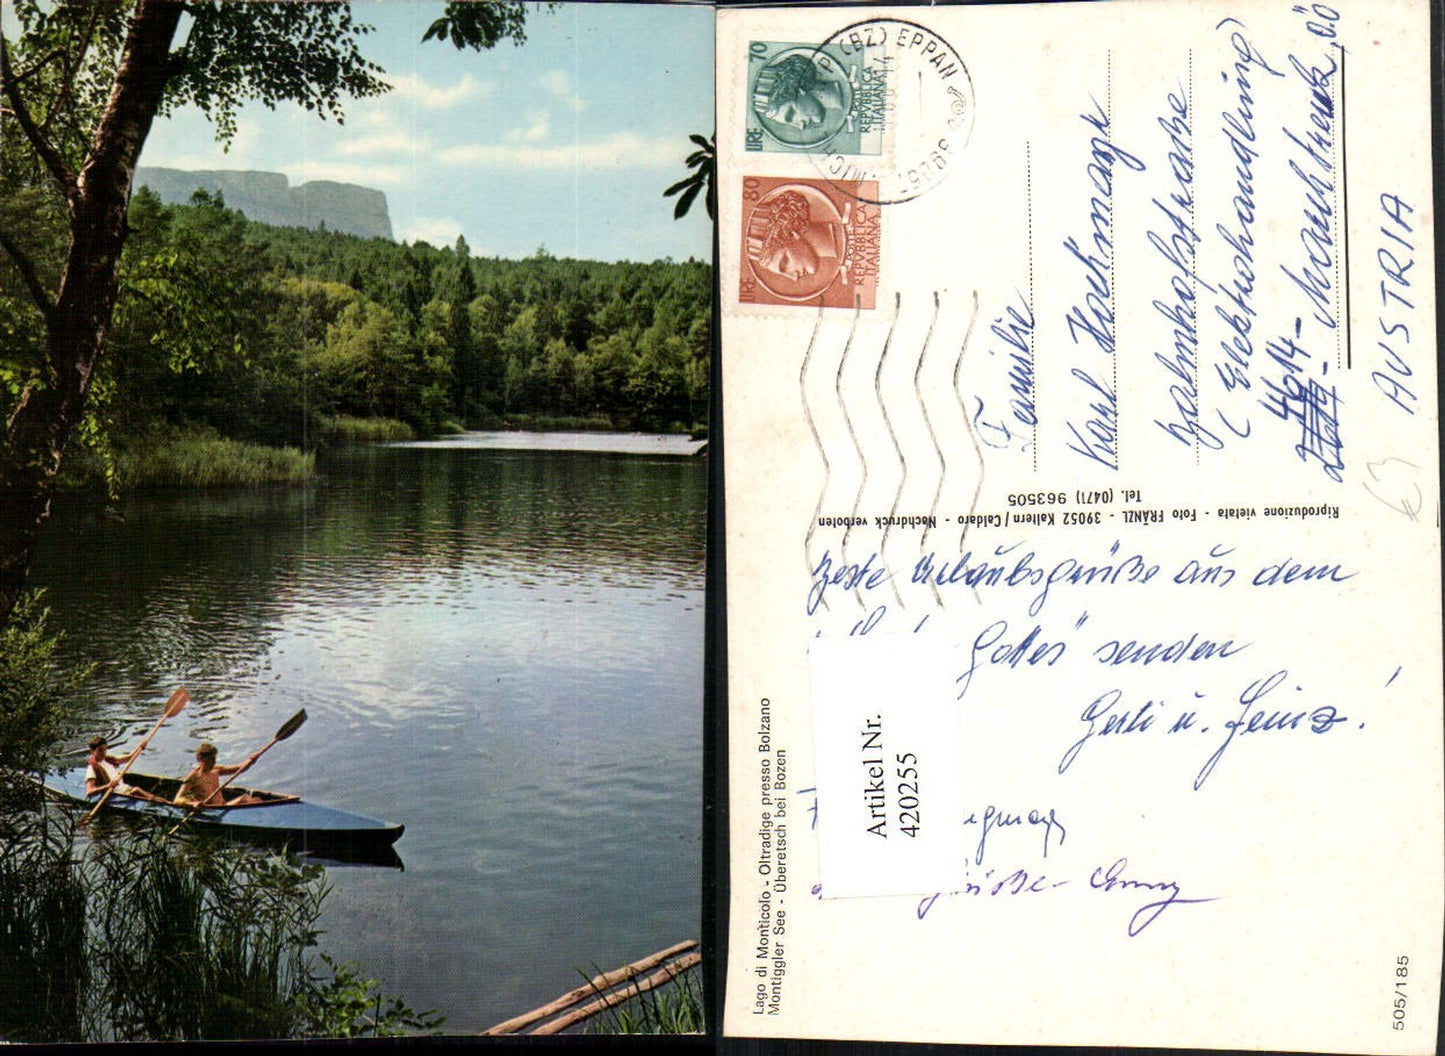 LIRE 70
POSTE
REPVBBLICA
ITALIANA
LIRE 80
POSTE
REPVBBLICA
ITALIANA
(BZ) EPPAN
Familie
Karl Hochmayr
Bahnhofstraße
(Elektrohandlung)
4614 Marchtrenk, OÖ
AUSTRIA
Riproduzione vietata - Foto FRÄNZL - 39052 Kaltern / Caldaro - Nachdruck verboten
Tel. (0471) 963505
Beste Urlaubsgrüße aus dem
Gottes" senden
Gerli u. Heinz!
Artikel Nr.
420255
Lago di Monticolo - Oltradige presso Bolzano
Montiggler See - Überetsch bei Bozen
505/185